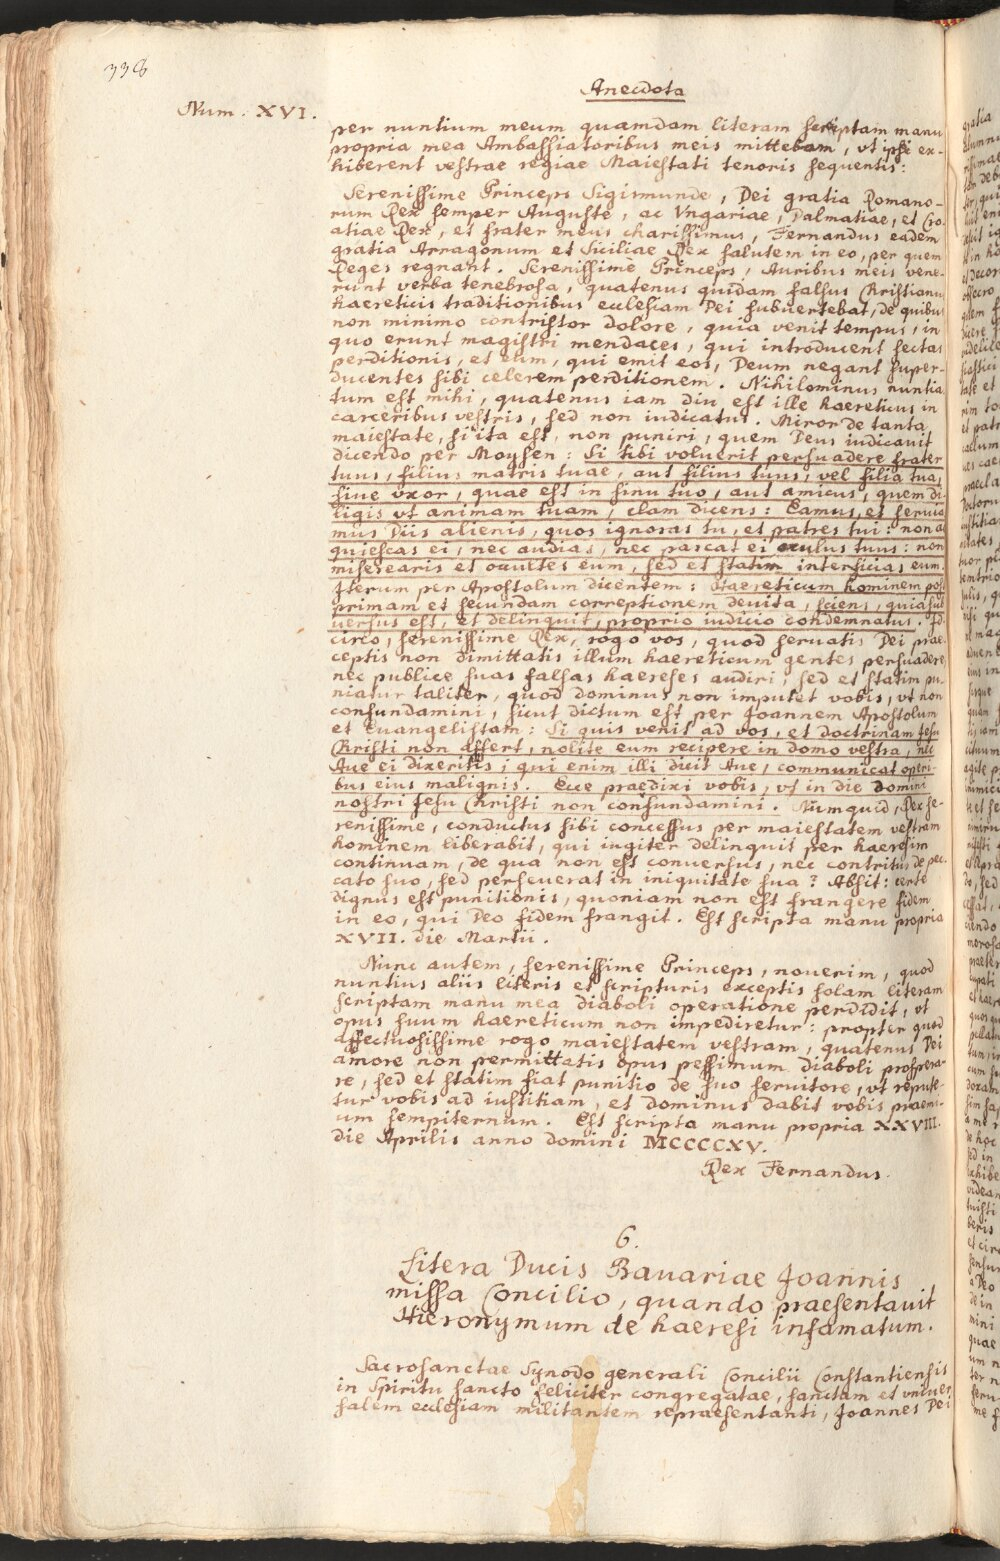 338
Anecdota
Num. XVI.
per nuntium meum quamdam literam scriptam manu
propria mea Ambassiatoribus meis mittebam, vt ipsi ex-
hiberent vestrae regiae Maiestati tenoris sequentis:
Serenissime Princeps Sigismunde, Dei gratia Romano-
rum Rex semper Auguste, ac Vngariae, Dalmatiae, et Cro-
atiae Rex, et frater meus charissimus, Fernandus eadem
gratia Arragonum et Siciliae Rex salutem in eo, per quem
Reges regnant. Serenissime Princeps, Auribus meis vene-
runt verba tenebrosa, quatenus quidam falsus Christianus
haereticis traditionibus ecclesiam Dei subuertebat, de quibus
non minimo contristor dolore, quia venit tempus, in
quo erunt magistri mendaces, qui introducent sectas
perditionis, et eum, qui emit eos, Deum negant super-
ducentes sibi celerem perditionem. Nihilominus nuntia-
tum est mihi, quatenus iam diu est ille haereticus in
carceribus vestris, sed non iudicatus. Miror de tanta
maiestate, si ita est, non puniri, quem Deus iudicauit
dicendo per Moysen: Si tibi voluerit persuadere frater
tuus, filius matris tuae, aut filius tuus, vel filia tua,
siue vxor, quae est in sinu tuo, aut amicus, quem di-
ligis vt animam tuam, clam dicens: Eamus, et seruia-
mus Diis alienis, quos ignoras tu, et patres tui: non ac
quiescas ei, nec audias, nec parcat ei oculus tuus: non
miserearis et occultes eum, sed et statim interficias eum.
Iterum per Apostolum dicentem: Haereticum hominem post
primam et secundam correptionem deuita, sciens, quia sub
uersus est, et delinquit, proprio iudicio condemnatus. Id-
circo, serenissime Rex, rogo vos, quod seruatis Dei prae-
ceptis non dimittatis illum haereticum gentes persuadere,
nec publice suas falsas haereses audiri, sed et statim pu-
niatur taliter, quod dominus non imputet vobis, vt non
confundamini, sicut dictum est per Joannem Apostolum
et Euangelistam: Si quis venit ad vos, et doctrinam Jesu
Christi non affert, nolite eum recipere in domo vestra, nec
Aue ei dixeritis; qui enim illi dicit Aue, communicat operi-
bus eius malignis. Ecce praedixi vobis, vt in die domini
nostri Jesu Christi non confundamini. Numquid, Rex se-
renissime, conductus sibi concessus per maiestatem vestram
hominem liberabit, qui iugiter delinquit per haeresim
continuam, de qua non est conuersus, nec contritus de pec-
cato suo, sed perseuerat in iniquitate sua? Absit: certe
dignus est punitionis, quoniam non est frangere fidem
in eo, qui Deo fidem frangit. Est scripta manu propria
XVII. die Martii.
Nunc autem, serenissime Princeps, nouerim, quod
nuntius aliis literis et scripturis exceptis solam literam
scriptam manu mea diaboli operatione perdidit, vt
opus suum haereticum non impediretur: propter quod
affectuosissime rogo maiestatem vestram, quatenus Dei
amore non permittatis opus pessimum diaboli prospera-
re, sed et statim fiat punitio de suo seruitore, vt repute-
tur vobis ad iustitiam, et dominus dabit vobis praemi-
um sempiternum. Est scripta manu propria XXVIII.
die Aprilis anno domini MCCCCXV.
Rex Fernandus.
6.
Litera Ducis Bauariae Joannis
missa Concilio, quando praesentauit
Hieronymum de haeresi infamatum.
Sacrosanctae Synodo generali Concilii Constantiensis
in Spiritu sancto feliciter congregatae, sanctam et vniuer-
salem ecclesiam militantem repraesentanti, Joannes Dei